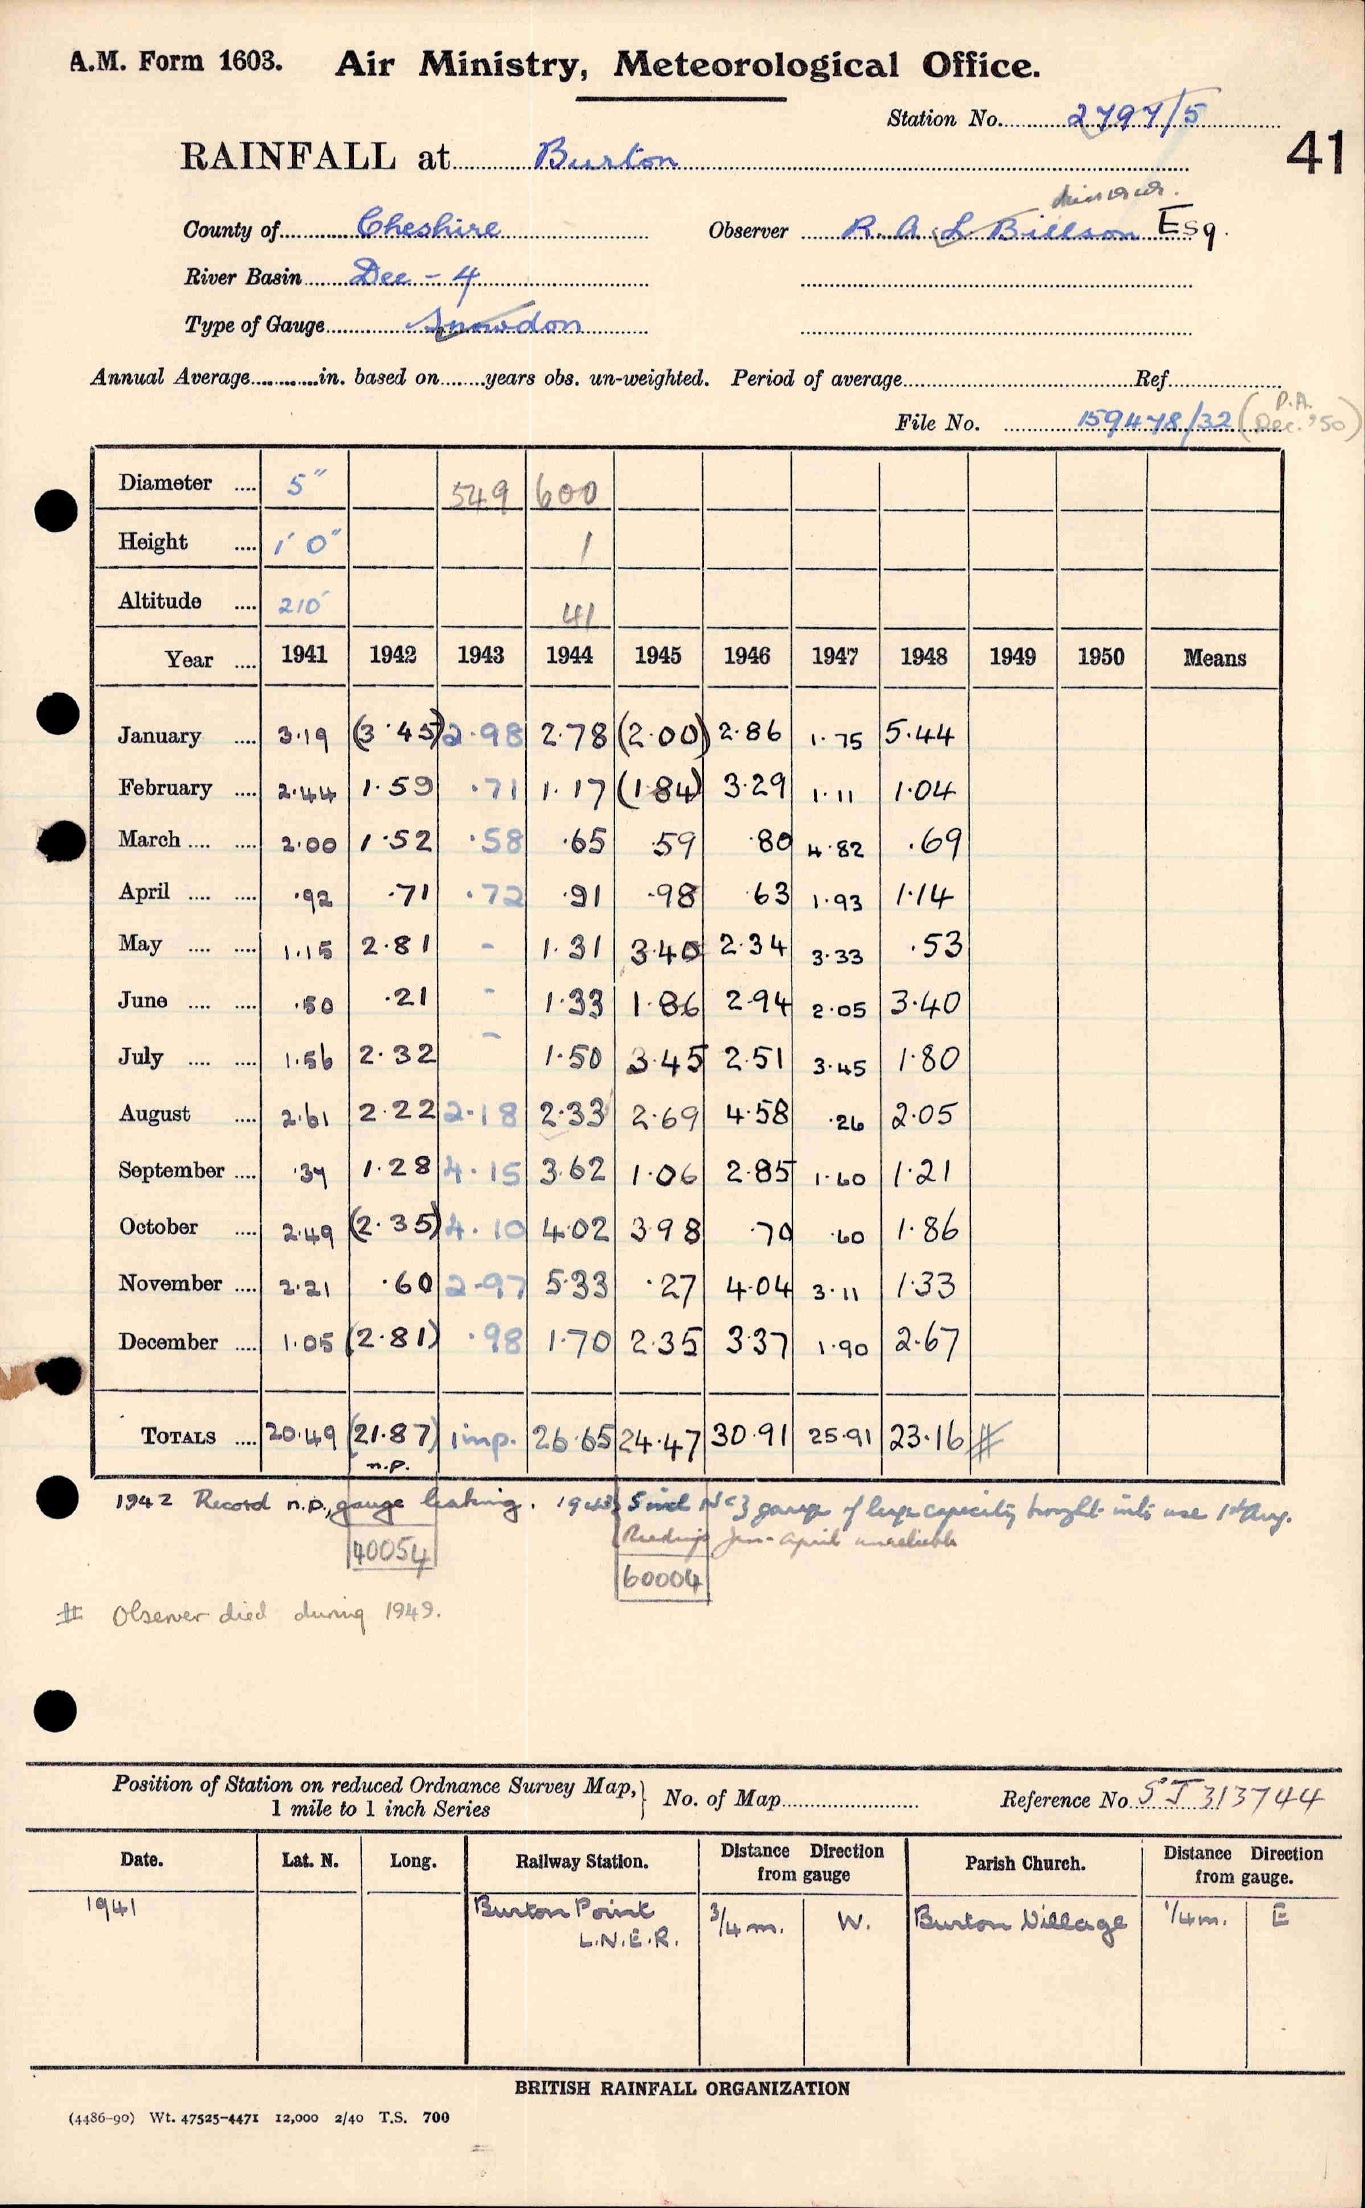 A.M. Form 1603. Air Ministry, Meteorological Office.
Station No. 2797/5
41
RAINFALL at Burton
County of Cheshire Observer R. A. L. Billson Esq.
River Basin Dee - 4
Type of Gauge Snowdon
Annual Average in. based on years obs. un-weighted. Period of average Ref
File No. 159478/32 (P.A. Dec. '50)
Diameter 5" 549 600
Height 1' 0" 1
Altitude 210' 41
Year 1941 1942 1943 1944 1945 1946 1947 1948 1949 1950 Means
January 3.19 (3.45) 2.98 2.78 (2.00) 2.86 1.75 5.44
February 2.44 1.59 .71 1.17 (1.84) 3.29 1.11 1.04
March 2.00 1.52 .58 .65 .59 .80 4.82 .69
April .92 .71 .72 .91 .98 .63 1.93 1.14
May 1.15 2.81 - 1.31 3.40 2.34 3.33 .53
June .50 .21 - 1.33 1.86 2.94 2.05 3.40
July 1.56 2.32 - 1.50 3.45 2.51 3.45 1.80
August 2.61 2.22 2.18 2.33 2.69 4.58 .26 2.05
September .37 1.28 4.15 3.62 1.06 2.85 1.60 1.21
October 2.49 (2.35) 4.10 4.02 3.98 .70 .60 1.86
November 2.21 .60 2.97 5.33 .27 4.04 3.11 1.33
December 1.05 (2.81) .98 1.70 2.35 3.37 1.90 2.67
TOTALS 20.49 (21.87) imp. 26.65 24.47 30.91 25.91 23.16 #
n.p.
1942 Record n.p., gauge leaking. 1943, 5 inch gauge of large capacity brought into use 1st Aug.
Readings Jan-April unreliable
40054
60004
# Observer died during 1949.
Position of Station on reduced Ordnance Survey Map, 1 mile to 1 inch Series } No. of Map Reference No. SJ 313744
Date. Lat. N. Long. Railway Station. Distance Direction from gauge Parish Church. Distance Direction from gauge.
1941 Burton Point L.N.E.R. 3/4 m. W. Burton Village 1/4 m. E
BRITISH RAINFALL ORGANIZATION
(4486-90) Wt. 47525-4471 12,000 2/40 T.S. 700